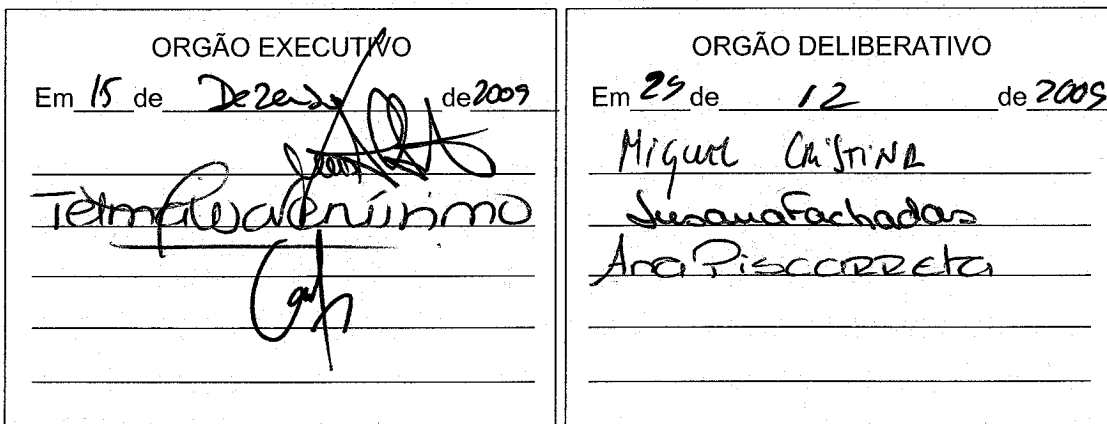 ORGÃO EXECUTIVO
Em 15 de Dezembro de 2009
Telma
ORGÃO DELIBERATIVO
Em 29 de 12 de 2009
Miguel Cristina
Susana Fachadas
Ana Piscarreta